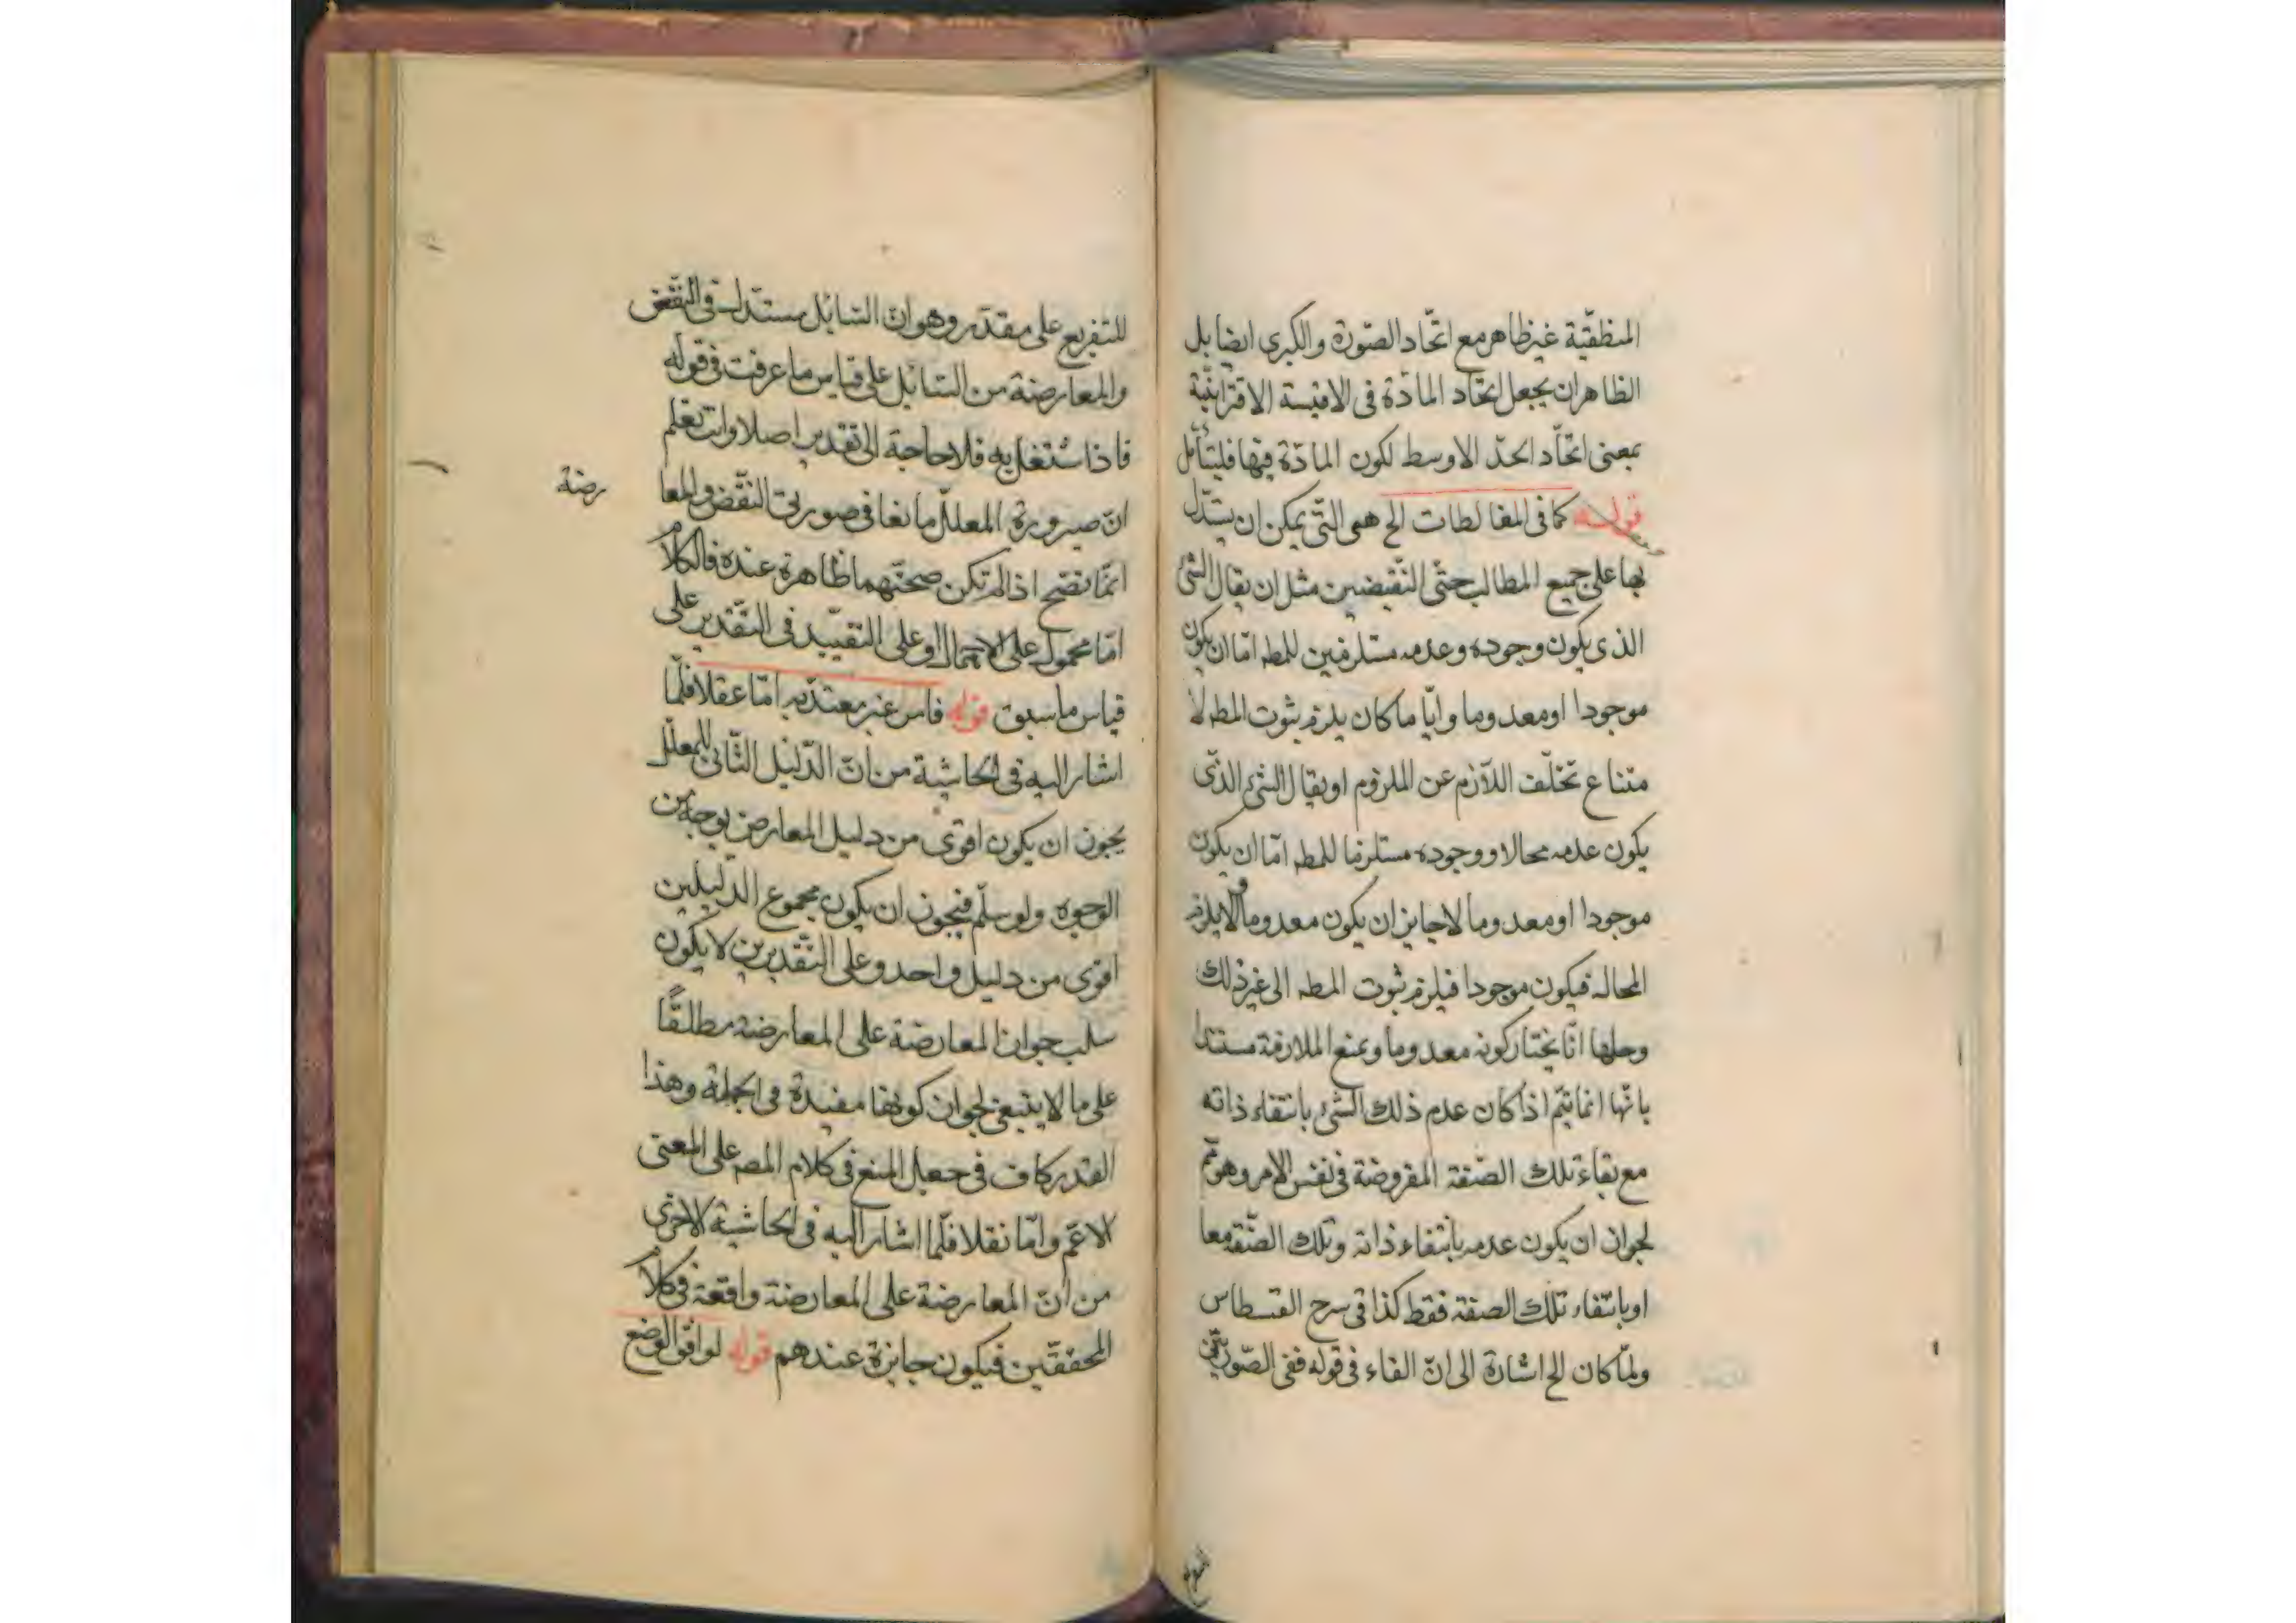 المنطقيّة غير ظاهر مع اتّحاد الصّورة والكبرى ايضا بل
الظاهر ان يجعل اتحاد المادّة فى الاقيسة الاقترانيّة
بمعنى اتّحاد الحدّ الاوسط لكون المادّة فيها فليتأمّل
قوله كما فى المغالطات الخ هى التّى يمكن ان يستدّل
بها على جميع المطالب حتّى النّقيضين مثل ان يقال الشئ
الذى يكون وجوده وعدمه مستلزمين للمط امّا ان يكون
موجودا او معدوما وايّا ما كان يلزم ثبوت المط لا
متناع تخلّف اللاّزم عن الملزوم او يقال الشئ الذّى
يكون عدمه محالا ووجوده مستلزما للمط امّا ان يكون
موجودا او معدوما لا جايز ان يكون معدوما والا يلزم
المحال فيكون موجودا فيلزم ثبوت المط الى غير ذلك
وحلها انّا نختار كونه معدوما ونمنع الملازمة مستندا
بانّها انما يتم اذا كان عدم ذلك الشئ بانتفاء ذاته
مع بقاء تلك الصّفة المفروضة فى نفس الامر وهو مم
لجواز ان يكون عدمه بانتفاء ذاته وتلك الصّفة معا
او بانتفاء تلك الصفة فقط كذا فى شرح القسطاس
ولمّا كان الخ اشارة الى انّ الفاء فى قوله ففى الصّورتين
للتفريع على مقدّر وهو انّ السّايل مستدّل فى النّقض
والمعارضة من السّايل على قياس ما عرفت فى قوله
فاذا اشتغل به فلا حاجة الى تقدير اصلا وانت تعلم
انّ صيرورة المعلّل مانعا فى صورتى النّقض والمعا
رضة
انّما تصّح اذا لم تكن صحتّهما ظاهرة عنده فالكلام
امّا محمول على الاهمال او على التقييد فى التّقدير على
قياس ما سبق قوله فاس غير معتدّ به امّا عقلا فلما
اشار اليه فى الحاشية من انّ الدّليل الثّانى للمعلّل
يجوز ان يكون اقوى من دليل المعارض بوجه من
الوجوه ولو سلّم فيجوز ان يكون مجموع الدّليلين
اقوى من دليل واحد وعلى التّقديرين لا يكون
سلب جواز المعارضة على المعارضة مطلقًا
على ما لا ينبغى لجواز كونها مفيدة فى الجملة وهذا
القدر كاف فى جعل المنع فى كلام المص على المعنى
الاعمّ وامّا نقلا فلما اشار اليه فى الحاشية الاخرى
من انّ المعارضة على المعارضة واقعة فى كلام
المحققّين فيكون جايزة عندهم قوله لوافق الوضع